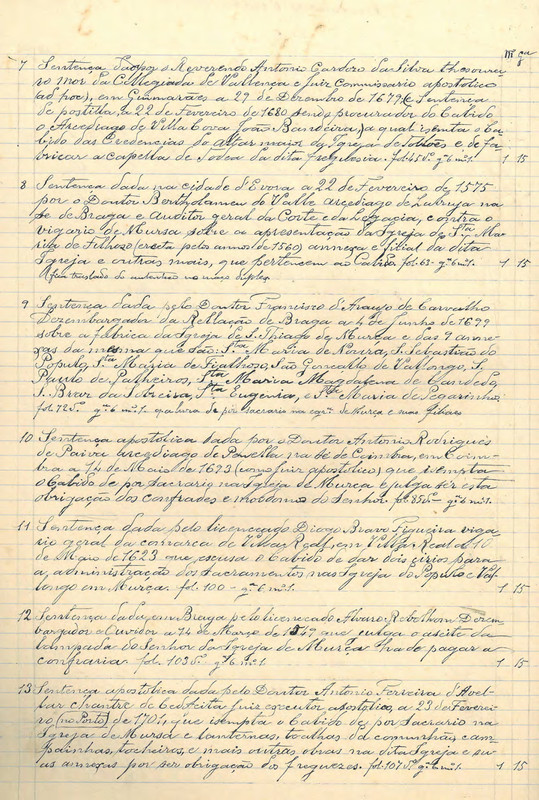 M ça
8
7 Sentença dada por o Reverendo Antonio Cardozo da Silva thesourei
ro mor da Collegiada de Vallença e Juiz Commissario apostolico
ad hoc, em Guimarães a 29 de Dezembro de 1679 (e Sentença
de postilla, a 22 de Fevereiro de 1680 sendo procurador do Cabido
o Arcediago de Villa Cova João Bandeira) a qual isenta o Ca
bido das Credencias do altar maior da Igreja de e de fa-
bricar a capella de da dita Freguesia. fol. 45 vº. gª 6 mº 1. 1 15
8 Sentença dada na cidade d'Evora a 22 de Fevereiro de 1575
por o Doutor Bertholameu do Valle arcediago de Labruja na
Sé de Braga e Auditor geral da Corte e da Legacia, contra o
vigario de Murça sobre a apresentação da Igreja de Sta Ma
ria de Filhoso (erecta pelos annos de 1560) anneça e filial da dita
Igreja e outras mais, que pertencem ao Cabido. fol. 63 - gª 6 mº 1. 1 15
traslado do autentico no maço duplex
9 Sentença dada pelo Doutor Francisco d'Araujo de Carvalho
Dezembargador da Rellação de Braga a 4 de Junho de 1699
sobre a fabrica da Igreja de S. Thiago de Murça e das 7 anne-
xas da mesma que são: Sta Maria de Noura, S. Sebastião do
Populo, Sta Maria de Fialhoso, São Goncallo de Vallongo, S.
Paulo de Palheiros, Sta Maria Magdalena de Candedo,
S. Braz da Ribeira, Sta Eugenia, e Sta Maria de Pegarinhos
fol. 72 vº. gª 6 mº 1. de por sacrario na egrª de Murça e suas filiaes
10 Sentença apostolica dada por o Doutor Antonio Rodrigues
de Paiva arcediago de Penella na Sé de Coimbra, em Coim-
bra a 14 de Maio de 1693 (como juiz apostolico) que izempta
o Cabido de por sacrario na Igreja de Murça e julga ser esta
obrigação dos confrades e mordomos do Senhor. fol. 85 vº. gª 6 mº 1.
11 Sentença dada pelo licenceado Diogo Bravo Figueira viga-
rio geral da comarca de Villa Real, em Villa Real a 10
de Maio de 1623 que, escusa o Cabido de dar dois cirios para
a administração dos Sacramentos nas Igreja do Populo e Val-
longo em Murça. fol. 100 - gª 6 mº 1. 1 15
12 Sentença dada, em Braga pelo licenceado Alvaro Rebelhom Dezem
bargador e Ouvidor a 14 de Março de 1549 que julga o aseite da
lampada do Senhor da Igreja de Murça ha de pagar a
confraria. fol. 103 vº. gª 6 mº 1. 1 15
13 Sentença apostolica dada pelo Doutor Antonio Ferreira d'Avel-
lar Chantre de Cedofeita juiz executor apostolico, a 23 de Feverei
ro (no Porto) de 1704, que isempta o Cabido de por Sacrario na
Igreja de Murça e lanternas, toalhas da comunhão, cam-
painhas, tocheiros, e mais outras obras na dita Igreja e su-
as anneças por ser obrigação dos freguezes. fol. 107 vº. gª 6 mº 1. 1 15